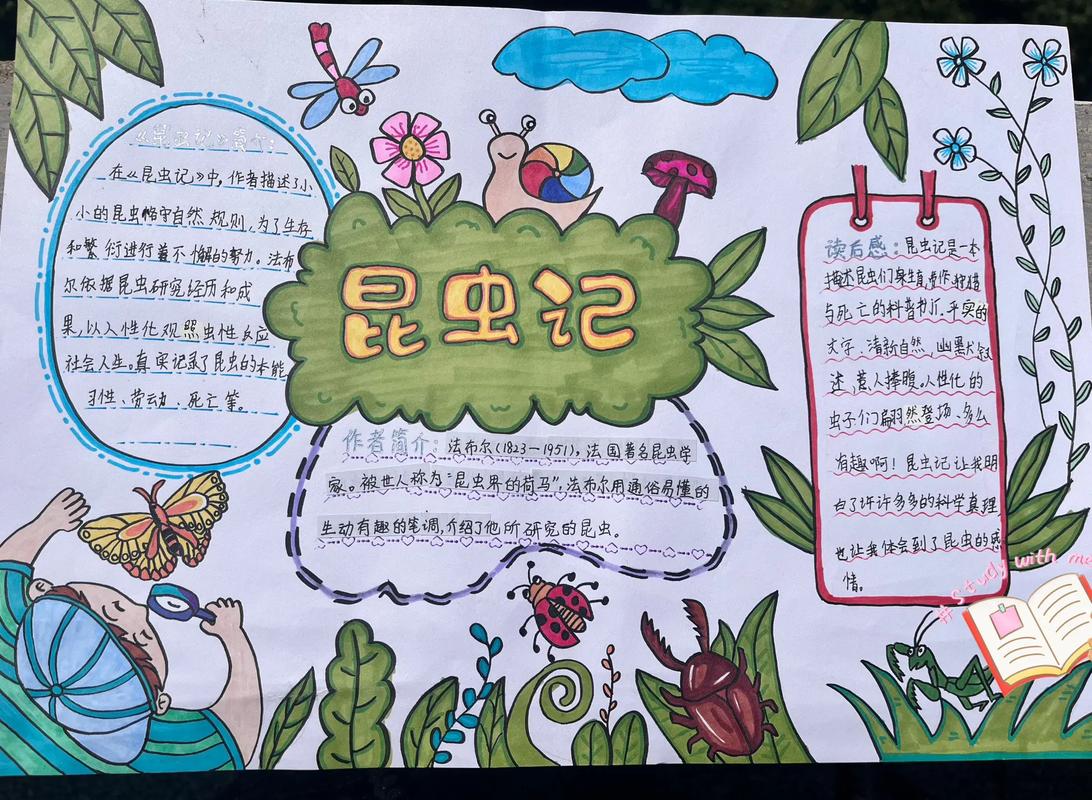 昆虫记
《昆虫记》简介：
在《昆虫记》中，作者描述了小
小的昆虫恪守自然规则，为了生存
和繁衍进行着不懈的努力。法布
尔依据昆虫研究经历和成
果，以人性化观照虫性反应
社会人生。真实记录了昆虫的本能
习性、劳动、死亡等。
作者简介：法布尔(1823—1951)，法国著名昆虫学
家。被世人称为"昆虫界的荷马"，法布尔用通俗易懂的
生动有趣的笔调，介绍了他所研究的昆虫。
读后感：昆虫记是一本
描述昆虫们
与死亡的科普书。平实的
文字，清新自然，幽默叙
述，惹人捧腹。人性化的
虫子们翩然登场，多么
有趣啊！昆虫记让我明
白了许许多多的科学真理
也让我体会到了昆虫的感
情。
#study with me